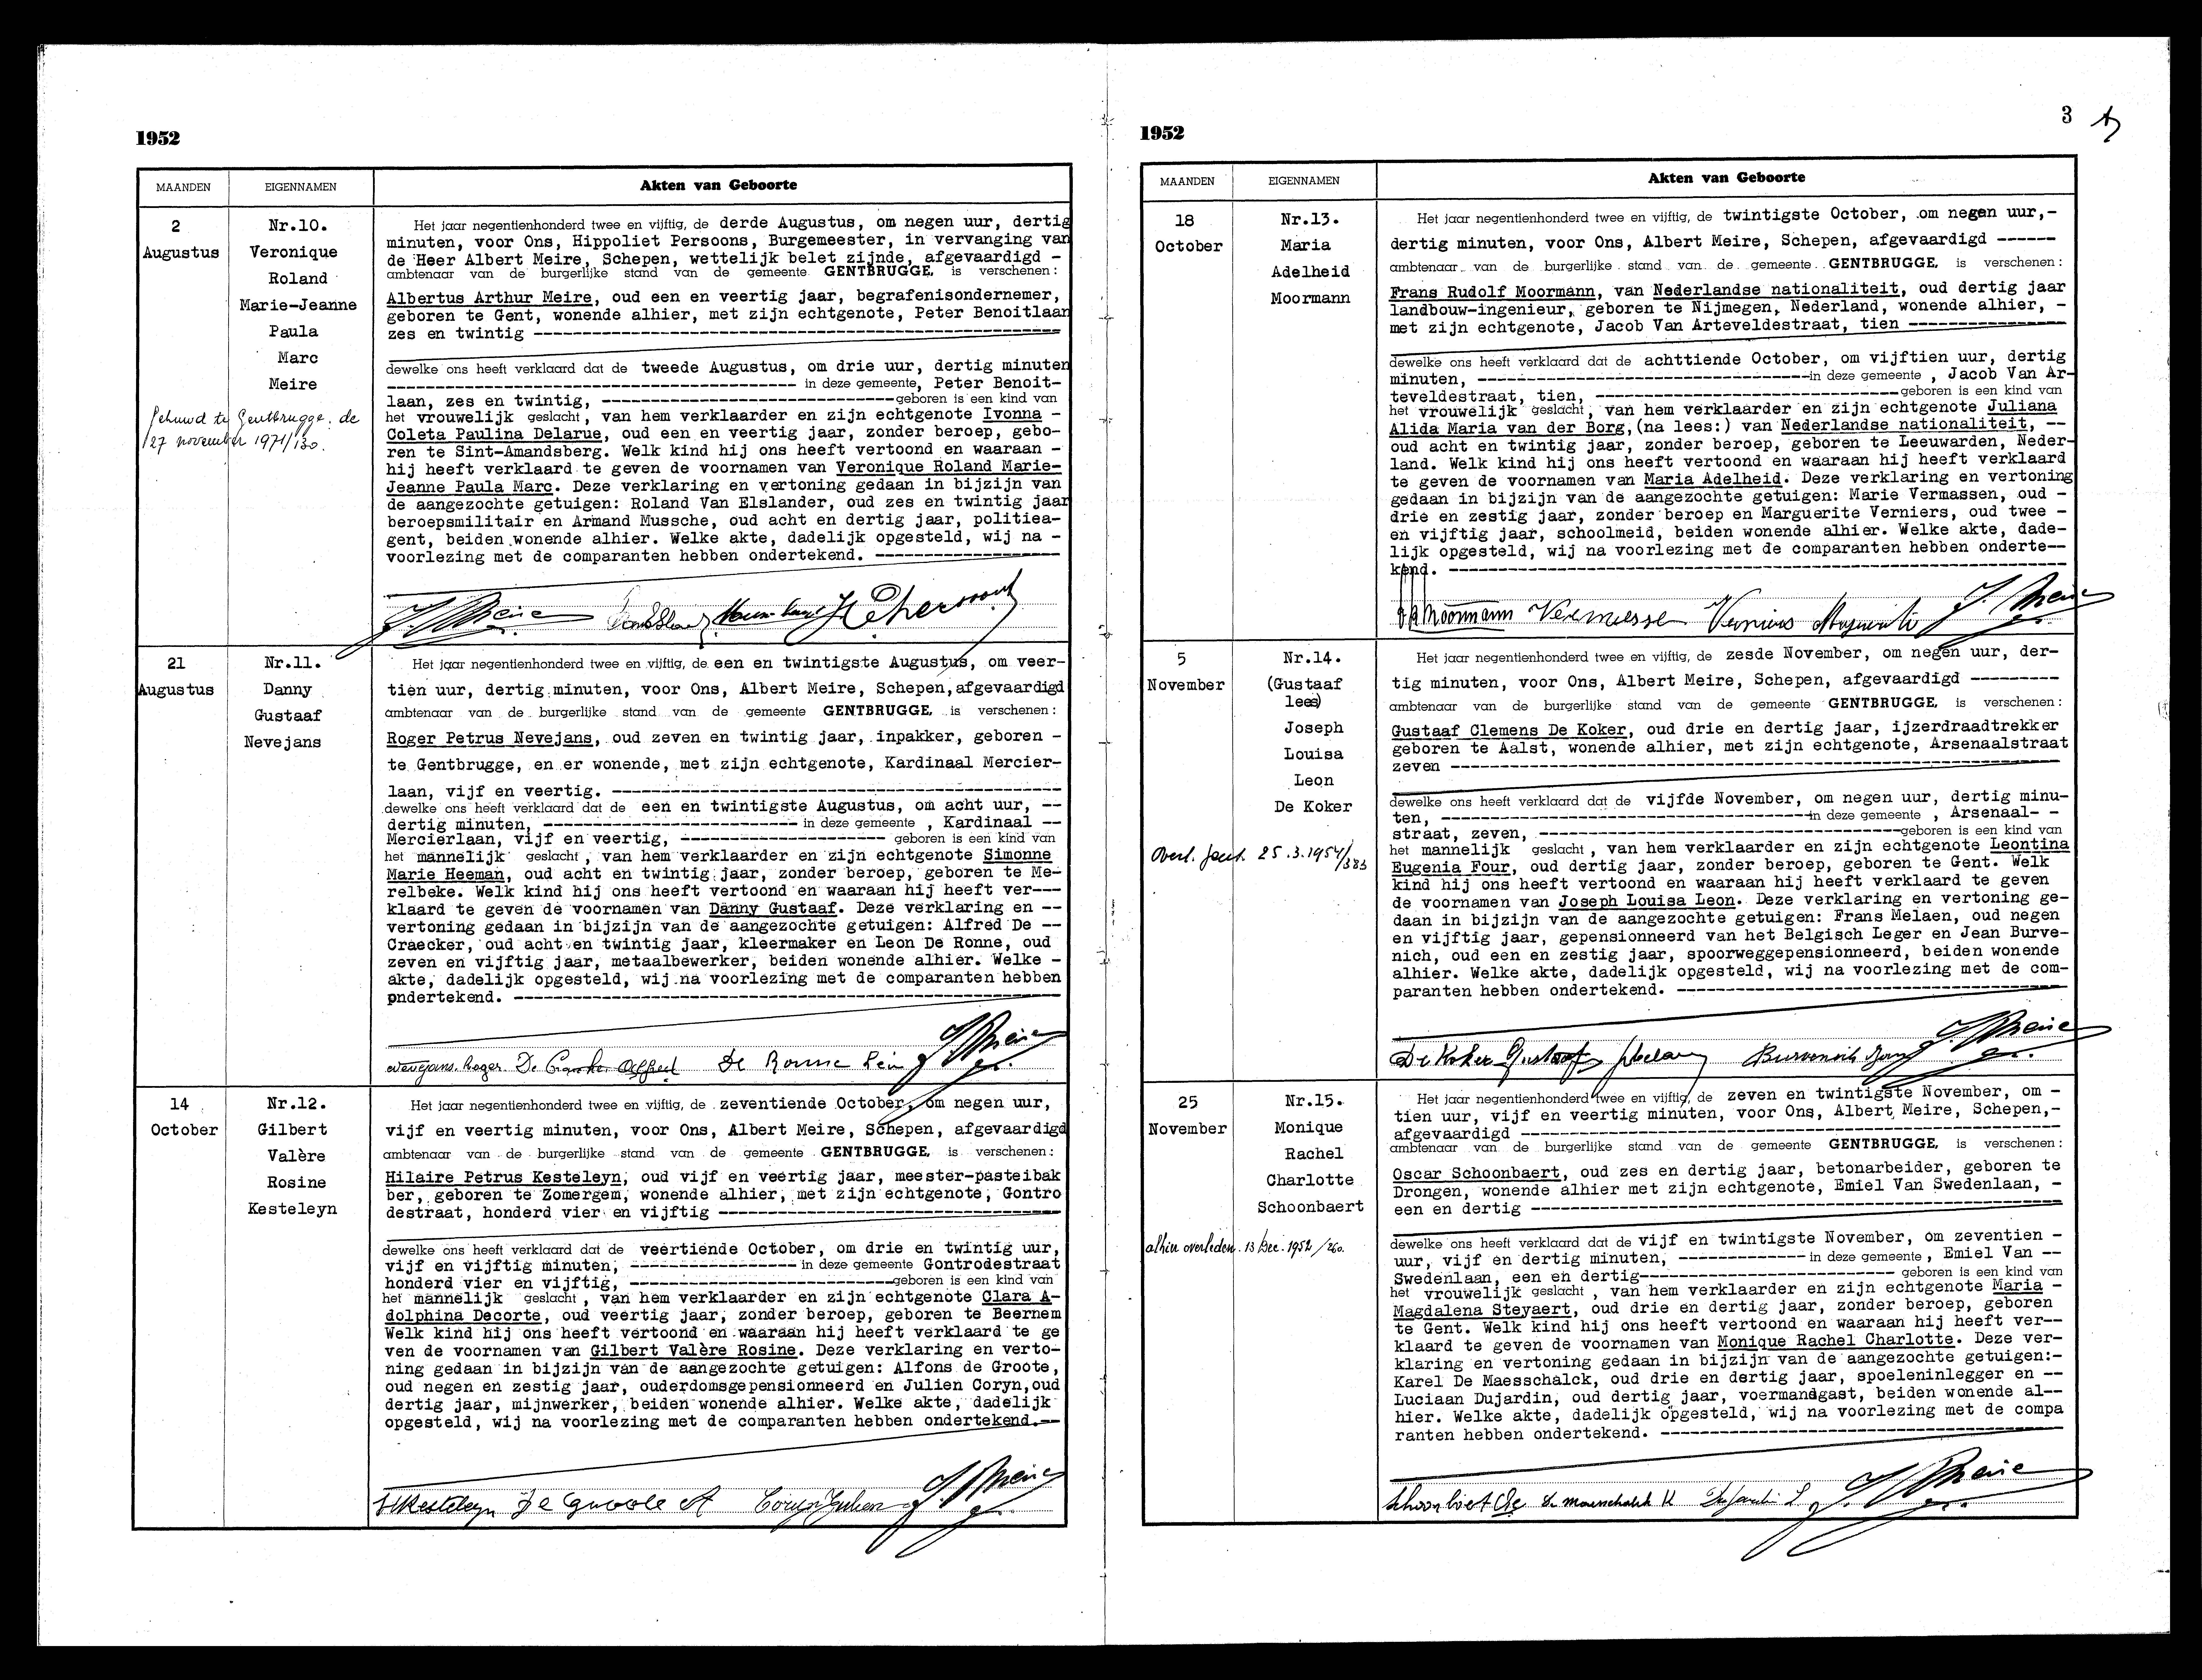 1952
MAANDEN
EIGENNAMEN
Akten van Geboorte
2
Augustus
Nr.10.
Veronique
Roland
Marie-Jeanne
Paula
Marc
Meire
Gehuwd te Gentbrugge. de
27 november 1971/130.
Het jaar negentienhonderd twee en vijftig, de derde Augustus, om negen uur, dertig
minuten, voor Ons, Hippoliet Persoons, Burgemeester, in vervanging van
de Heer Albert Meire, Schepen, wettelijk belet zijnde, afgevaardigd -
ambtenaar van de burgerlijke stand van de gemeente GENTBRUGGE, is verschenen:
Albertus Arthur Meire, oud een en veertig jaar, begrafenisondernemer,
geboren te Gent, wonende alhier, met zijn echtgenote, Peter Benoitlaan
zes en twintig ---
dewelke ons heeft verklaard dat de tweede Augustus, om drie uur, dertig minuten
--- in deze gemeente, Peter Benoit-
laan, zes en twintig, --- geboren is een kind van
het vrouwelijk geslacht, van hem verklaarder en zijn echtgenote Ivonna -
Coleta Paulina Delarue, oud een en veertig jaar, zonder beroep, gebo-
ren te Sint-Amandsberg. Welk kind hij ons heeft vertoond en waaraan -
hij heeft verklaard te geven de voornamen van Veronique Roland Marie-
Jeanne Paula Marc. Deze verklaring en vertoning gedaan in bijzijn van
de aangezochte getuigen: Roland Van Elslander, oud zes en twintig jaar
beroepsmilitair en Armand Mussche, oud acht en dertig jaar, politiea-
gent, beiden wonende alhier. Welke akte, dadelijk opgesteld, wij na -
voorlezing met de comparanten hebben ondertekend. ---
21
Augustus
Nr.11.
Danny
Gustaaf
Nevejans
Het jaar negentienhonderd twee en vijftig, de een en twintigste Augustus, om veer-
tien uur, dertig minuten, voor Ons, Albert Meire, Schepen, afgevaardigd
ambtenaar van de burgerlijke stand van de gemeente GENTBRUGGE, is verschenen:
Roger Petrus Nevejans, oud zeven en twintig jaar, inpakker, geboren -
te Gentbrugge, en er wonende, met zijn echtgenote, Kardinaal Mercier-
laan, vijf en veertig. ---
dewelke ons heeft verklaard dat de een en twintigste Augustus, om acht uur, --
dertig minuten, --- in deze gemeente , Kardinaal --
Mercierlaan, vijf en veertig, --- geboren is een kind van
het mannelijk geslacht, van hem verklaarder en zijn echtgenote Simonne
Marie Heeman, oud acht en twintig jaar, zonder beroep, geboren te Me-
relbeke. Welk kind hij ons heeft vertoond en waaraan hij heeft ver---
klaard te geven de voornamen van Danny Gustaaf. Deze verklaring en --
vertoning gedaan in bijzijn van de aangezochte getuigen: Alfred De --
Craecker, oud acht en twintig jaar, kleermaker en Leon De Ronne, oud
zeven en vijftig jaar, metaalbewerker, beiden wonende alhier. Welke -
akte, dadelijk opgesteld, wij na voorlezing met de comparanten hebben
ondertekend. ---
De Ronne Leon
14
October
Nr.12.
Gilbert
Valère
Rosine
Kesteleyn
Het jaar negentienhonderd twee en vijftig, de zeventiende October, om negen uur,
vijf en veertig minuten, voor Ons, Albert Meire, Schepen, afgevaardigd
ambtenaar van de burgerlijke stand van de gemeente GENTBRUGGE, is verschenen:
Hilaire Petrus Kesteleyn, oud vijf en veertig jaar, meester-pasteibak
ber, geboren te Zomergem, wonende alhier, met zijn echtgenote, Gontro
destraat, honderd vier en vijftig ---
dewelke ons heeft verklaard dat de veertiende October, om drie en twintig uur,
vijf en vijftig minuten, --- in deze gemeente Gontrodestraat
honderd vier en vijftig, --- geboren is een kind van
het mannelijk geslacht, van hem verklaarder en zijn echtgenote Clara A-
dolphina Decorte, oud veertig jaar, zonder beroep, geboren te Beernem
Welk kind hij ons heeft vertoond en waaraan hij heeft verklaard te ge
ven de voornamen van Gilbert Valère Rosine. Deze verklaring en verto-
ning gedaan in bijzijn van de aangezochte getuigen: Alfons de Groote,
oud negen en zestig jaar, ouderdomsgepensionneerd en Julien Coryn, oud
dertig jaar, mijnwerker, beiden wonende alhier. Welke akte, dadelijk
opgesteld, wij na voorlezing met de comparanten hebben ondertekend.--
HKesteleyn De Groote A Coryn Julien
3
1952
MAANDEN
EIGENNAMEN
Akten van Geboorte
18
October
Nr.13.
Maria
Adelheid
Moormann
Het jaar negentienhonderd twee en vijftig, de twintigste October, om negen uur,-
dertig minuten, voor Ons, Albert Meire, Schepen, afgevaardigd ------
ambtenaar van de burgerlijke stand van de gemeente GENTBRUGGE, is verschenen:
Frans Rudolf Moormann, van Nederlandse nationaliteit, oud dertig jaar
landbouw-ingenieur, geboren te Nijmegen, Nederland, wonende alhier, -
met zijn echtgenote, Jacob Van Arteveldestraat, tien ---
dewelke ons heeft verklaard dat de achttiende October, om vijftien uur, dertig
minuten, --- in deze gemeente , Jacob Van Ar-
teveldestraat, tien, --- geboren is een kind van
het vrouwelijk geslacht, van hem verklaarder en zijn echtgenote Juliana
Alida Maria van der Borg,(na lees:) van Nederlandse nationaliteit, --
oud acht en twintig jaar, zonder beroep, geboren te Leeuwarden, Neder-
land. Welk kind hij ons heeft vertoond en waaraan hij heeft verklaard
te geven de voornamen van Maria Adelheid. Deze verklaring en vertoning
gedaan in bijzijn van de aangezochte getuigen: Marie Vermassen, oud -
drie en zestig jaar, zonder beroep en Marguerite Verniers, oud twee -
en vijftig jaar, schoolmeid, beiden wonende alhier. Welke akte, dade-
lijk opgesteld, wij na voorlezing met de comparanten hebben onderte--
kend. ---
Moormann Vermesse Verniers
5
November
Nr.14.
(Gustaaf
lees)
Joseph
Louisa
Leon
De Koker
Overl. Gent. 25.3.1954/383
Het jaar negentienhonderd twee en vijftig, de zesde November, om negen uur, der-
tig minuten, voor Ons, Albert Meire, Schepen, afgevaardigd ---------
ambtenaar van de burgerlijke stand van de gemeente GENTBRUGGE, is verschenen:
Gustaaf Clemens De Koker, oud drie en dertig jaar, ijzerdraadtrekker
geboren te Aalst, wonende alhier, met zijn echtgenote, Arsenaalstraat
zeven ---
dewelke ons heeft verklaard dat de vijfde November, om negen uur, dertig minu-
ten, --- in deze gemeente , Arsenaal- -
straat, zeven, --- geboren is een kind van
het mannelijk geslacht, van hem verklaarder en zijn echtgenote Leontina
Eugenia Four, oud dertig jaar, zonder beroep, geboren te Gent. Welk
kind hij ons heeft vertoond en waaraan hij heeft verklaard te geven
de voornamen van Joseph Louisa Leon. Deze verklaring en vertoning ge-
daan in bijzijn van de aangezochte getuigen: Frans Melaen, oud negen
en vijftig jaar, gepensionneerd van het Belgisch Leger en Jean Burve-
nich, oud een en zestig jaar, spoorweggepensionneerd, beiden wonende
alhier. Welke akte, dadelijk opgesteld, wij na voorlezing met de com-
paranten hebben ondertekend. ---
De Koker Gustaaf
25
November
Nr.15.
Monique
Rachel
Charlotte
Schoonbaert
alhier overleden. 13 Dec. 1952/260.
Het jaar negentienhonderd twee en vijftig, de zeven en twintigste November, om -
tien uur, vijf en veertig minuten, voor Ons, Albert Meire, Schepen,-
afgevaardigd ---
ambtenaar van de burgerlijke stand van de gemeente GENTBRUGGE, is verschenen:
Oscar Schoonbaert, oud zes en dertig jaar, betonarbeider, geboren te
Drongen, wonende alhier met zijn echtgenote, Emiel Van Swedenlaan, -
een en dertig ---
dewelke ons heeft verklaard dat de vijf en twintigste November, om zeventien -
uur, vijf en dertig minuten, --- in deze gemeente, Emiel Van --
Swedenlaan, een en dertig--- geboren is een kind van
het vrouwelijk geslacht, van hem verklaarder en zijn echtgenote Maria -
Magdalena Steyaert, oud drie en dertig jaar, zonder beroep, geboren
te Gent. Welk kind hij ons heeft vertoond en waaraan hij heeft ver--
klaard te geven de voornamen van Monique Rachel Charlotte. Deze ver-
klaring en vertoning gedaan in bijzijn van de aangezochte getuigen:-
Karel De Maesschalck, oud drie en dertig jaar, spoeleninlegger en --
Luciaan Dujardin, oud dertig jaar, voermandgast, beiden wonende al--
hier. Welke akte, dadelijk opgesteld, wij na voorlezing met de compa
ranten hebben ondertekend. ---
De maesschalck K Dujardin L